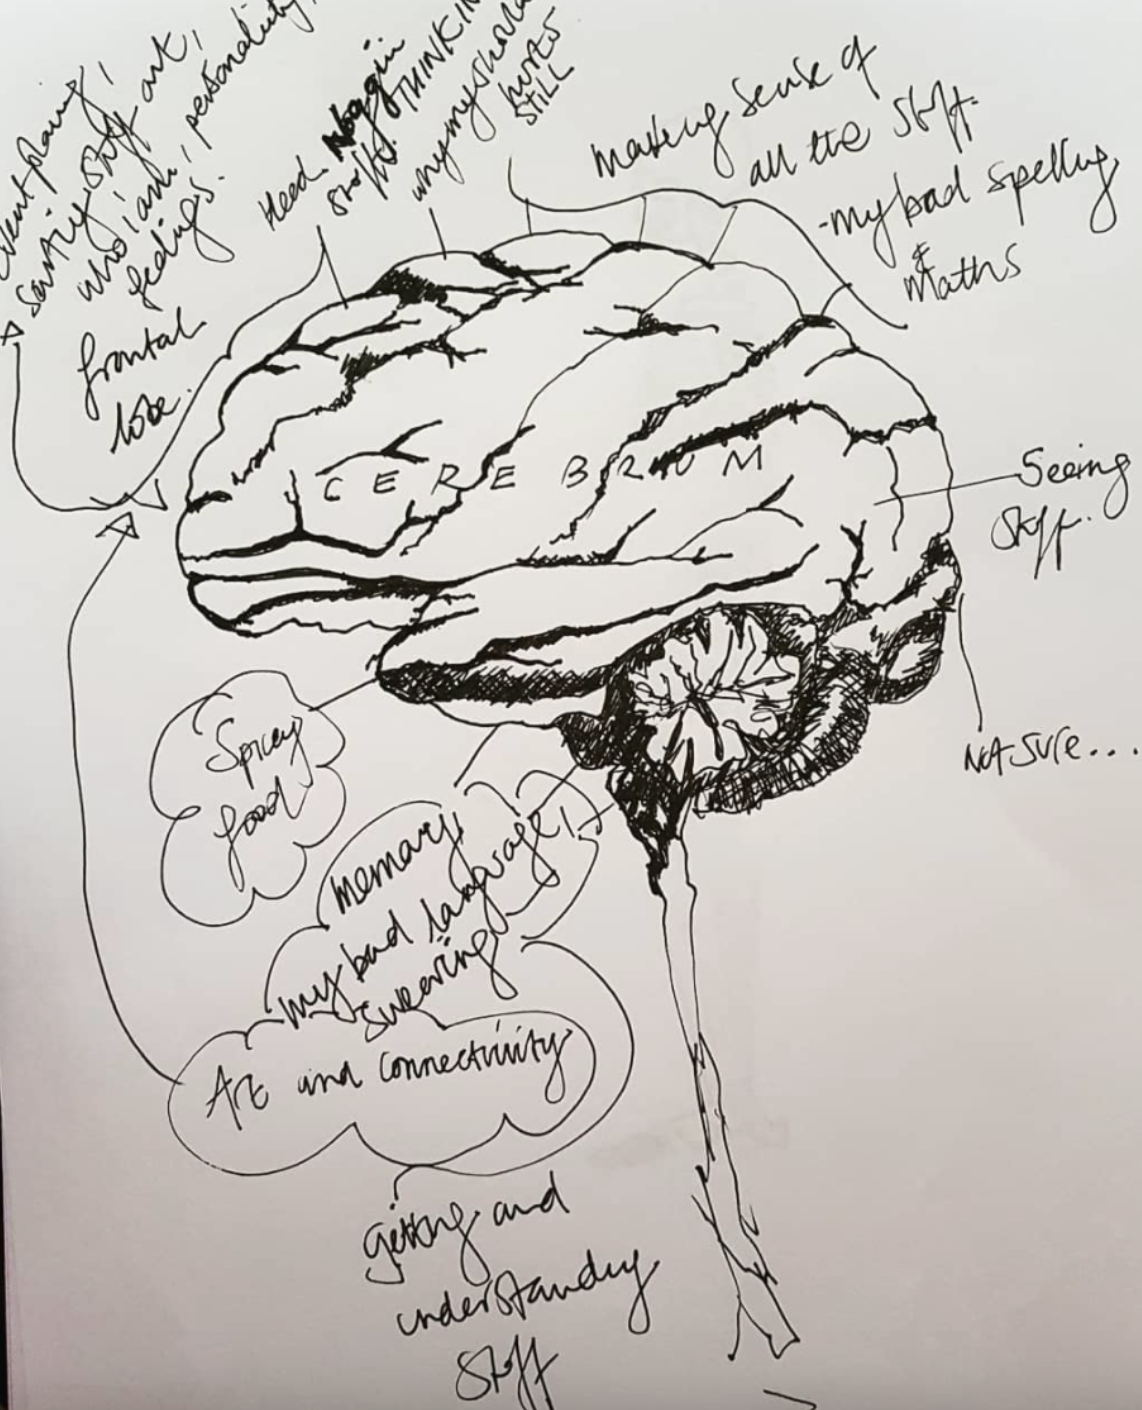 planning,
stuff art,
who i am, personality,
feelings.
frontal
lobe.
Head Noggin
stuff. THINKIN
why my
hurts
STILL
Making sense of
all the stuff.
-my bad spelling
&
Maths
CEREBRUM
Seeing
stuff.
Not sure...
Spicey
food
Memory,
my bad language,
swearing
Art and connectivity
getting and
understanding
stuff